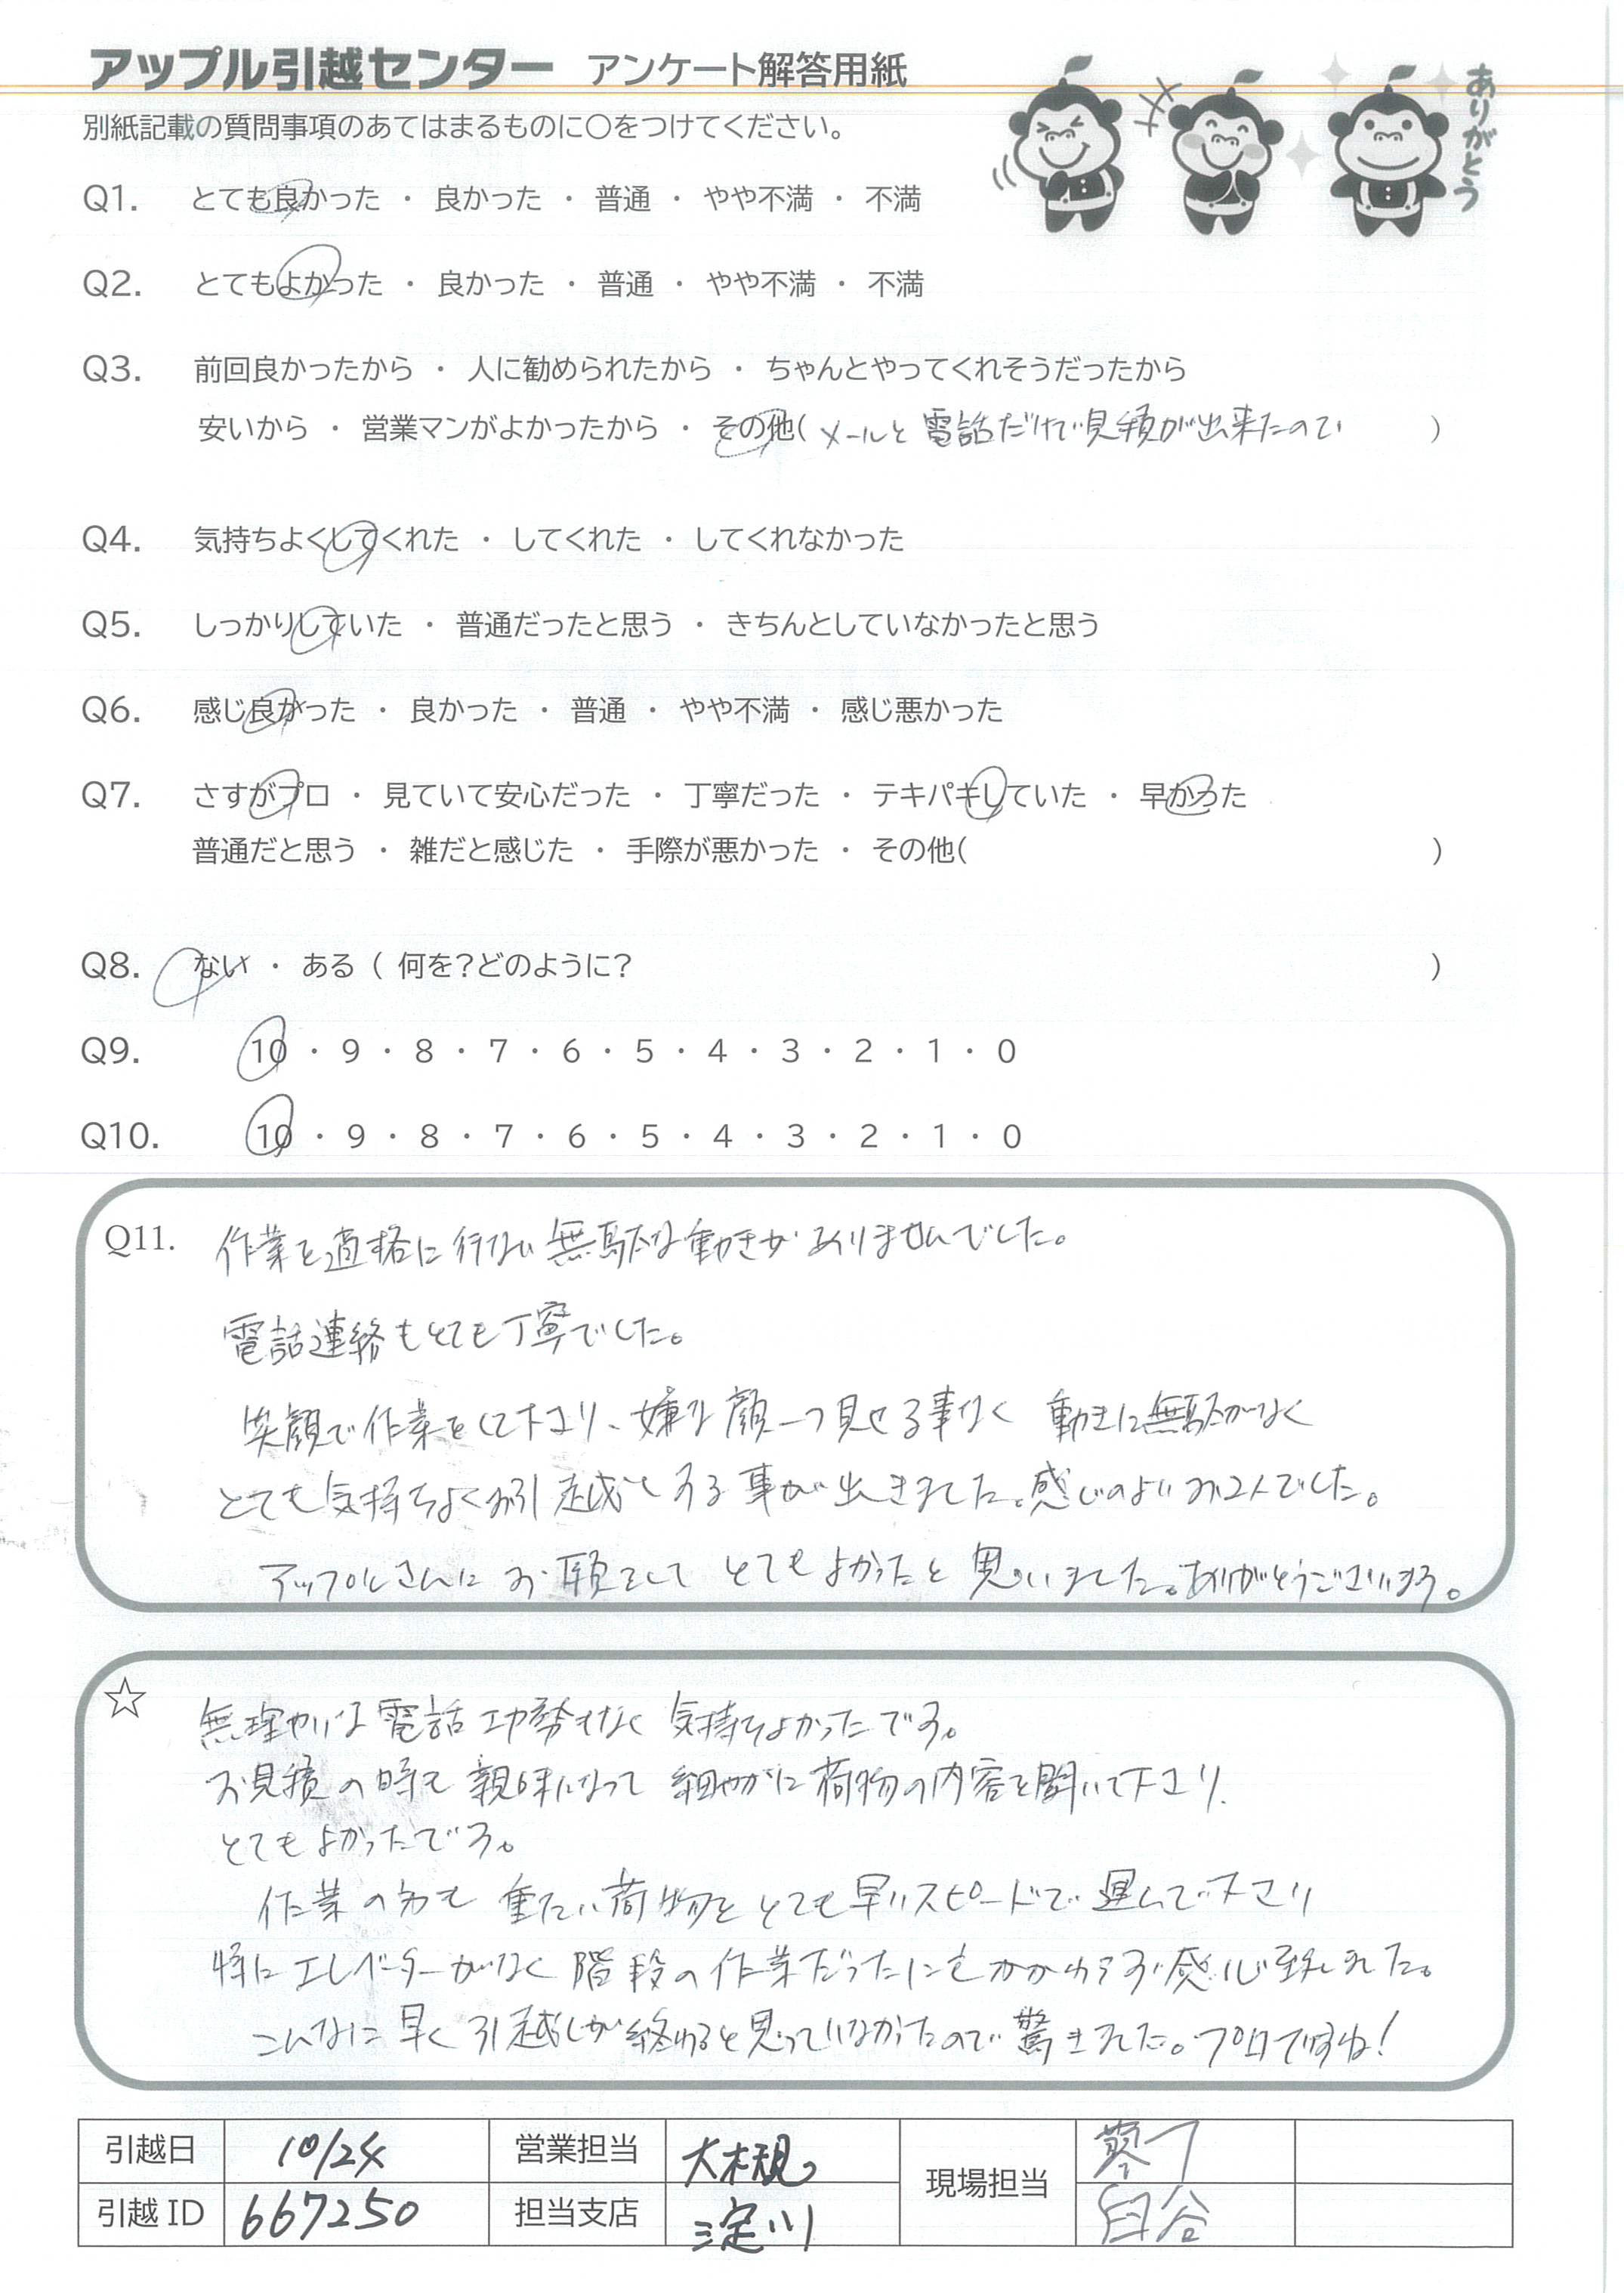 アップル引越センター アンケート解答用紙
ありがとう
別紙記載の質問事項のあてはまるものに○をつけてください。
Q1. とても良かった ・ 良かった ・ 普通 ・ やや不満 ・ 不満
Q2. とてもよかった ・ 良かった ・ 普通 ・ やや不満 ・ 不満
Q3. 前回良かったから ・ 人に勧められたから ・ ちゃんとやってくれそうだったから
安いから ・ 営業マンがよかったから ・ その他( メールと電話だけで見積が出来たので )
Q4. 気持ちよくしてくれた ・ してくれた ・ してくれなかった
Q5. しっかりしていた ・ 普通だったと思う ・ きちんとしていなかったと思う
Q6. 感じ良かった ・ 良かった ・ 普通 ・ やや不満 ・ 感じ悪かった
Q7. さすがプロ ・ 見ていて安心だった ・ 丁寧だった ・ テキパキしていた ・ 早かった
普通だと思う ・ 雑だと感じた ・ 手際が悪かった ・ その他( )
Q8. ない ・ ある ( 何を?どのように? )
Q9. 10 ・ 9 ・ 8 ・ 7 ・ 6 ・ 5 ・ 4 ・ 3 ・ 2 ・ 1 ・ 0
Q10. 10 ・ 9 ・ 8 ・ 7 ・ 6 ・ 5 ・ 4 ・ 3 ・ 2 ・ 1 ・ 0
Q11. 作業を適格に行ない無駄な動きがありませんでした。
電話連絡もとても丁寧でした。
笑顔で作業をして下さり、嫌な顔一つ見せる事なく 動きに無駄がなく
とても気持ちよくお引越しする事が出きました。感じのよいお2人でした。
アップルさんにお願いして とてもよかったと思いました。ありがとうございます。
☆ 無理やりな電話功勢もなく 気持ちよかったです。
お見積の時も 親味になって 細やかに荷物の内容を聞いて下さり、
とてもよかったです。
作業の方も 重たい荷物を とても早いスピードで運んで下さり
特にエレベーターがなく 階段の作業だったにもかかわらず感心致しました。
こんなに早く引越しが終わると思っていなかったので驚きました。プロですね!
引越日 10/24 営業担当 大槻 現場担当
引越ID 667250 担当支店 淀川 臼谷